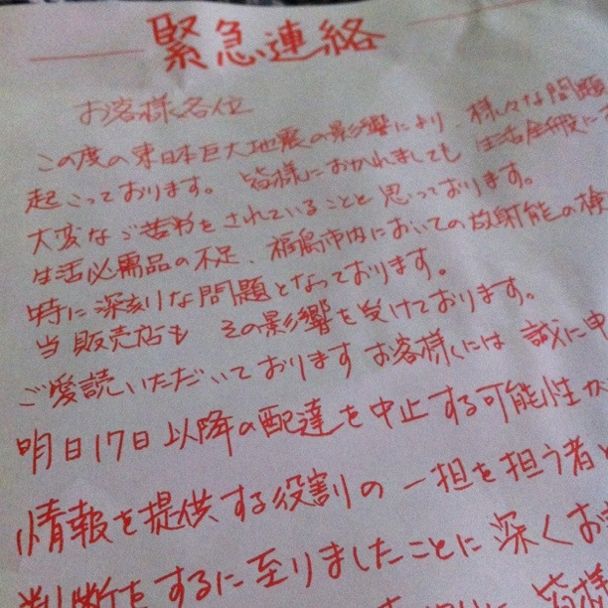 緊急連絡
お客様各位
この度の東日本巨大地震の影響により、様々な問題
起こっております。皆様におかれましても 生活全般に
大変なご苦労をされていることと思っております。
生活必需品の不足、福島市内においての放射能の検
特に深刻な問題となっております。
当販売店も その影響を受けております。
ご愛読いただいておりますお客様には 誠に申
明日17日以降の配達を中止する可能性が
情報を提供する役割の一担を担う者と
判断をするに至りましたことに深くお
皆様